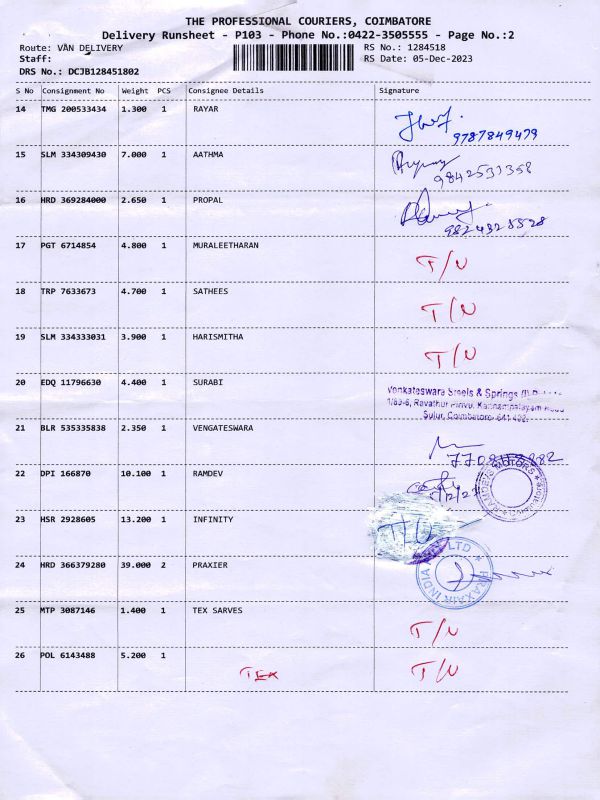 THE PROFESSIONAL COURIERS, COIMBATORE
Delivery Runsheet - P103 - Phone No.:0422-3505555 - Page No.:2
Route: VAN DELIVERY RS No.: 1284518
Staff: RS Date: 05-Dec-2023
DRS No.: DCJB128451802
S No Consignment No Weight PCS Consignee Details Signature
14 TMG 200533434 1.300 1 RAYAR
9787849479
15 SLM 334309430 7.000 1 AATHMA
9842531358
16 HRD 369284000 2.650 1 PROPAL
17 PGT 6714854 4.800 1 MURALEETHARAN T/N
18 TRP 7633673 4.700 1 SATHEES T/N
19 SLM 334333031 3.900 1 HARISMITHA T/N
20 EDQ 11796630 4.400 1 SURABI
Venkateswara Steels & Springs
Sulur, Coimbatore
21 BLR 535335838 2.350 1 VENGATESWARA
22 DPI 166870 10.100 1 RAMDEV
23 HSR 2928605 13.200 1 INFINITY
24 HRD 366379280 39.000 2 PRAXIER
PRAXAIR INDIA LTD
25 MTP 3087146 1.400 1 TEX SARVES T/N
26 POL 6143488 5.200 1 T/N
TEX